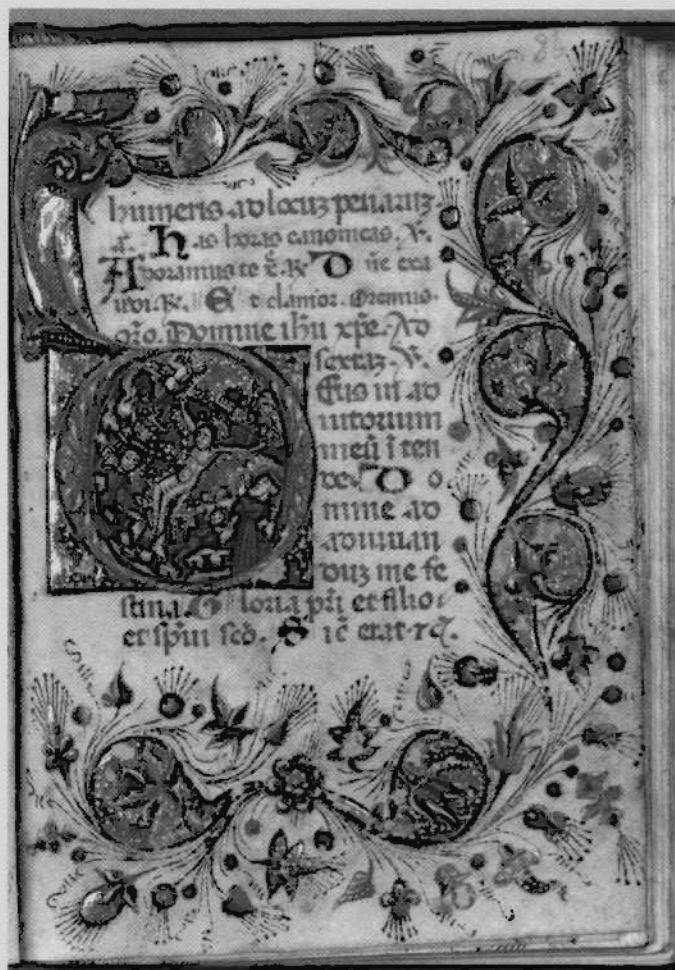 humeris ad locuz penaruz
a. Has horas canonicas. V.
Adoramus te. R. Dñe exa
udi. R. Et clamor. Oremus.
Oro. Domine ihu xpe. Ad
sextaz. V.
Eus in ad
iutorium
meū ī ten
de. Do
mine ad
adiuuan
duz me fe
stina. Gloria pri et filio.
et spui sco. Sic erat. rc.